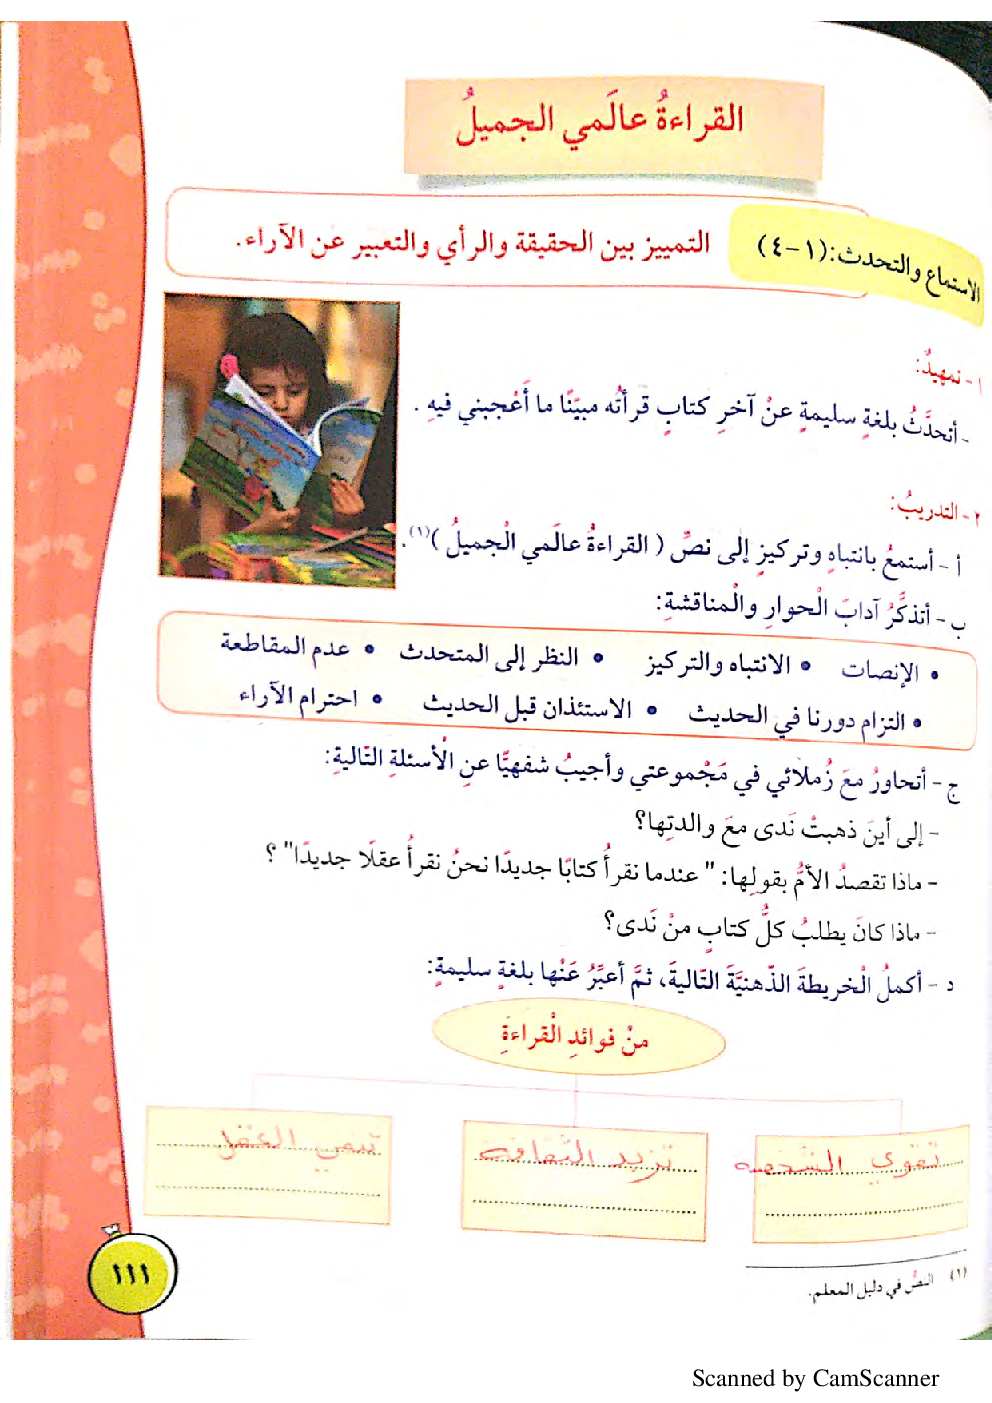 القراءةُ عالَمي الجميلُ
الاستماع والتحدث: (١-٤)
التمييز بين الحقيقة والرأي والتعبير عن الآراء.
١- تمهيدٌ:
- أتحدَّثُ بلغةٍ سليمةٍ عنْ آخرِ كتابٍ قرأتُه مبيّنًا ما أَعْجبني فيهِ .
٢- التدريبُ:
أ - أستمعُ بانتباهٍ وتركيزٍ إلى نصِّ ( القراءةُ عالَمي الْجميلُ )(١).
ب- أتذكَّرُ آدابَ الْحوارِ والْمناقشةِ:
• الإنصات • الانتباه والتركيز • النظر إلى المتحدث • عدم المقاطعة
• التزام دورنا في الحديث • الاستئذان قبل الحديث • احترام الآراء
ج- أتحاورُ معَ زُملائي في مَجْموعتي وأجيبُ شفهيًّا عنِ الْأسئلةِ التّاليةِ:
- إلى أينَ ذهبتْ نَدى معَ والدتِها؟
- ماذا تقصدُ الأمُّ بقولِها: " عندما نقرأُ كتابًا جديدًا نحنُ نقرأُ عقلًا جديدًا" ؟
- ماذا كانَ يطلبُ كلُّ كتابٍ منْ نَدى؟
د - أكملُ الْخريطةَ الذّهنيَّةَ التّاليةَ، ثمَّ أعبِّرُ عَنْها بلغةٍ سليمةٍ:
منْ فوائدِ الْقراءةِ
تقوي الشخصيه
تزيد الثقافة
تنمي العقل
(١) النصُّ في دليل المعلم.
١١١
Scanned by CamScanner